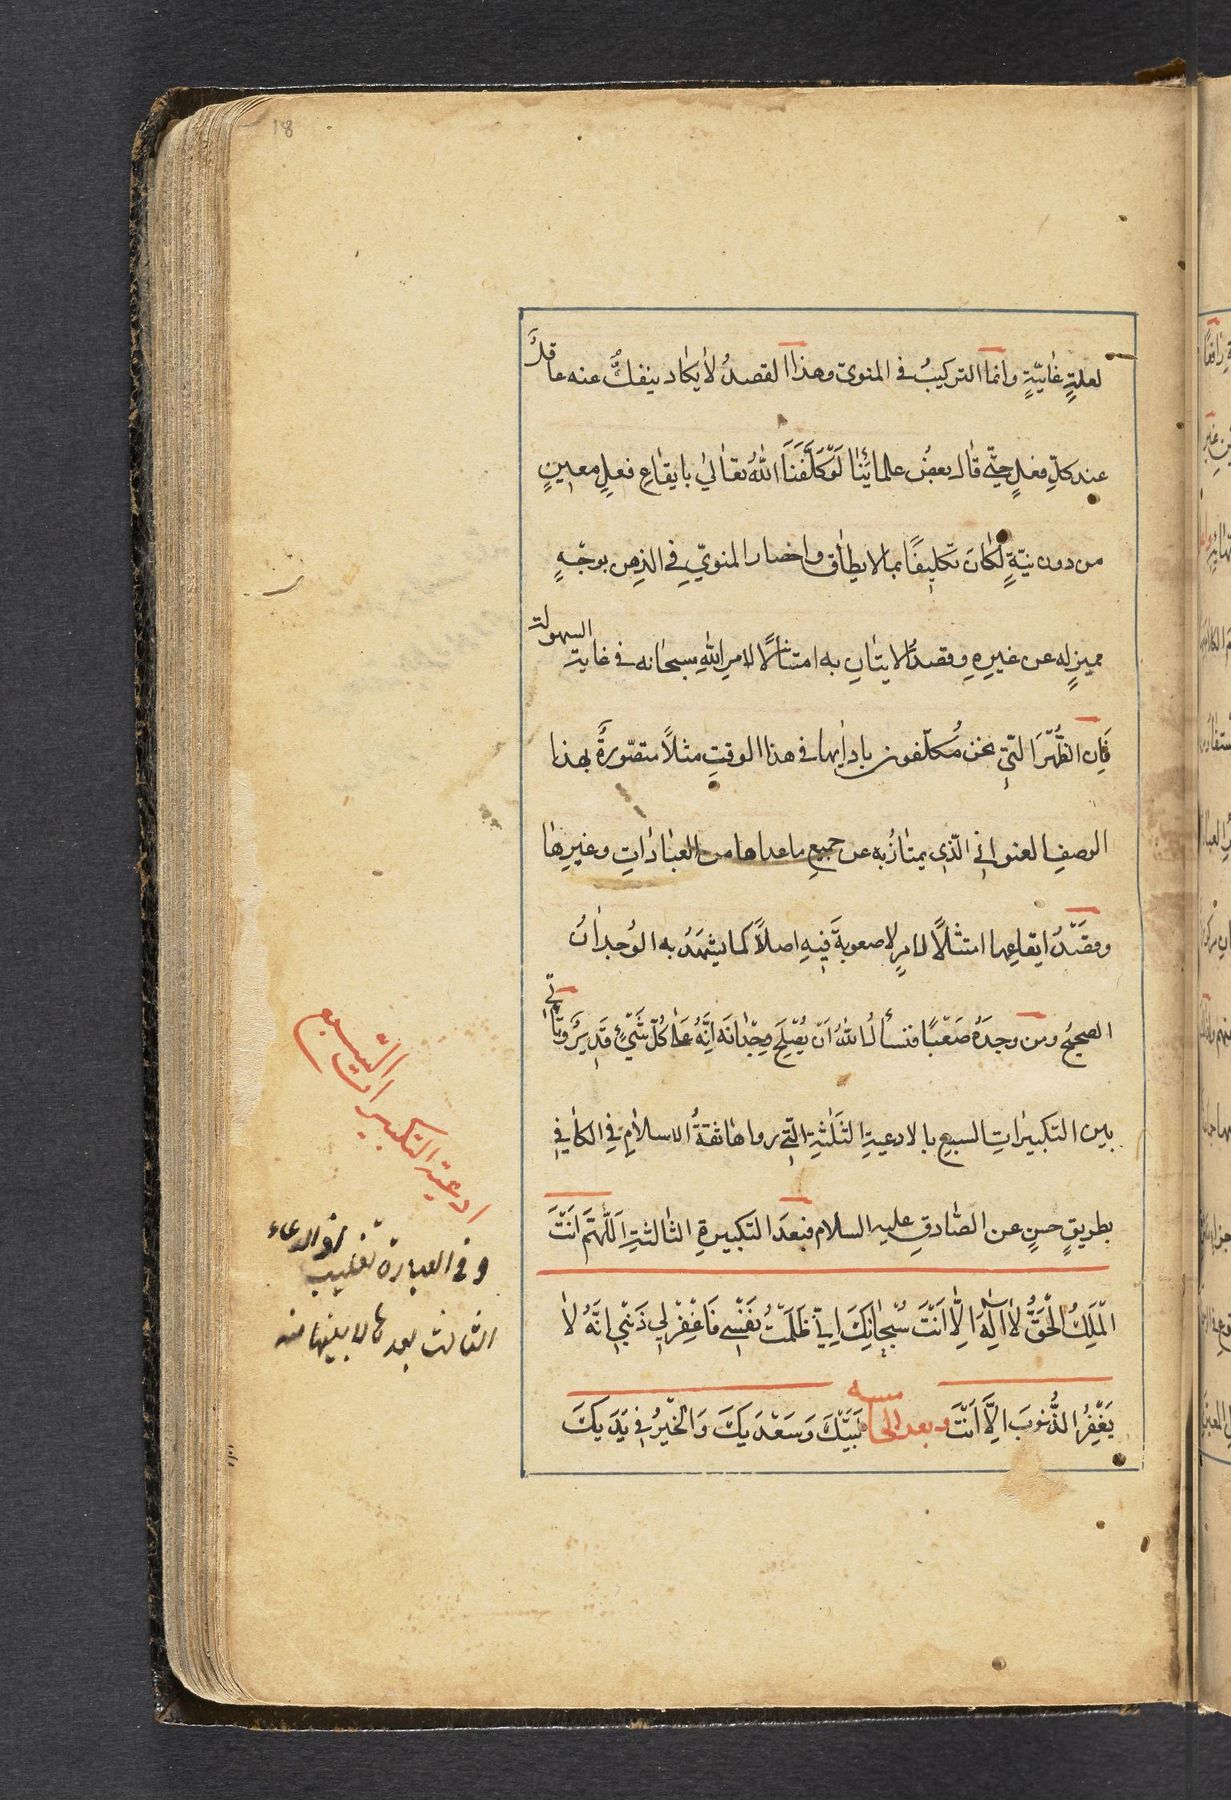 18
لعلةٍ غائيّةٍ وانما التركيبُ فى المنوىّ وهذا القصدُ لا يكاد ينفكُّ عنه عاقلٌ
عند كلِّ فعلٍ حتّى قال بعضُ علمائنا لَوْ كَلَّفَنَا اللهُ تعالىٰ بايقاعِ فعلٍ معينٍ
من دون نيّةٍ لكان تكليفًا بما لا يطاق واحضار المنويِّ فى الذهن بوجهٍ
مميزٍ له عن غيرِهِ وقصدُ الايتانِ به امتثالًا لامرِ اللهِ سبحانه فى غاية السهولة
فَاِن الظُّهْرَ الّتى نحن مُكلّفون بادائها فى هذا الوقتِ مثلاً متصّورةٌ بهذا
الوصفِ العنوانى الّذى يمتازُ به عن جميعِ ما عداها من العباداتِ وغيرِها
وقَصْدُ ايقاعِها امتثالًا لامرٍ لا صعوبةَ فيهِ اصلاً كما يشهدُ به الوُجدانُ
الصحيحُ ومن وجدَهُ صَعْبًا فنسألُ اللهَ اَنْ يُصْلِحَ وِجْدَانَه اِنَّهُ عَلٰى كُلِّ شَىْءٍ قَدِيرٌ وتأتى
بين التكبيراتِ السبعِ بالادعيةِ الثَلٰثةِ الّتى رواها ثقةُ الاسلامِ فى الكافى
بطريقٍ حسنٍ عن الصّادقِ عليه السلام فبعدَ التكبيرةِ الثالثةِ اَللّٰهُمَّ اَنْتَ
الْمَلِكُ الْحَقُّ لاٰ اِلٰهَ اِلّاٰ اَنْتَ سُبْحٰانَكَ اِنّى ظَلَمْتُ نَفْسِى فَاغْفِرْ لِى ذَنْبِى اِنَّهُ لاٰ
يَغْفِرُ الذُّنوبَ اِلَّا اَنْتَ وبعد الخامسه لَبَّيْكَ وَسَعْدَيْكَ وَالْخَيْرُ فِى يَدَيْكَ
ادعية التكبيرات السبع
وفى العبارة تغليب اذ الدعاء
الثالث بعدها لا بينها منه